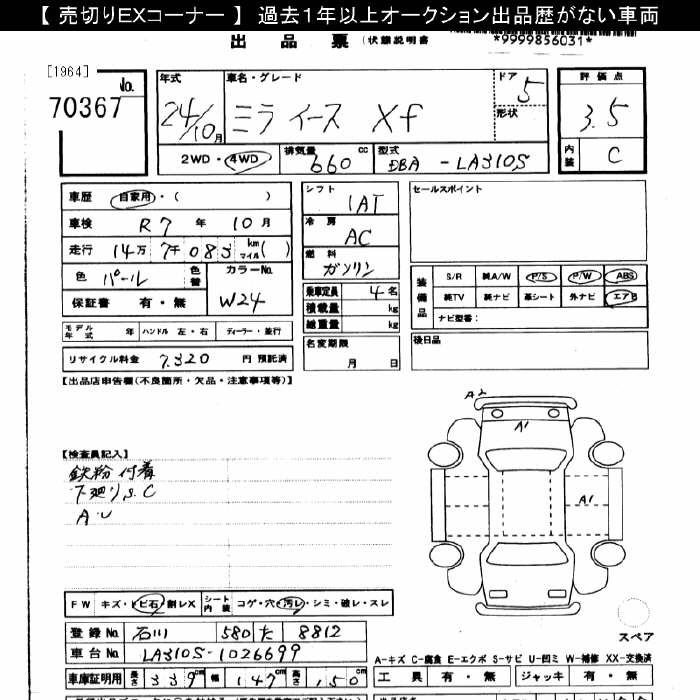 【 売切りEXコーナー 】 過去１年以上オークション出品歴がない車両
出 品 票 (状態説明書
*9999856031*
[1964]
No.
70367
年式
24/10月
車名・グレード
ミラ イース Xf
ドア
5
形状
評価点
3.5
2WD・4WD
排気量
660 cc
型式
DBA - LA310S
内装
C
車歴 自家用・( )
車検 R7 年 10月
走行 14万 7千 083 km マイル( )
色 パール
色替
カラーNo.
W24
保証書 有・無
モデル年式 年 ハンドル 左・右 ディーラー・並行
リサイクル料金 7,320 円 預託済
シフト
IAT
冷房
AC
燃料
ガソリン
乗車定員 4名
積載量 kg
総重量 kg
名変期限
月 日
セールスポイント
装備品
S/R 純A/W P/S P/W ABS
純TV 純ナビ 革シート 外ナビ エアB
ナビ型番：
後日品
【出品店申告欄(不良箇所・欠品・注意事項等)】
【検査員記入】
鉄粉付着
下廻りS.C
A.U
A2
A1
A1
スペア
FW キズ・トビ石・割レX
シート内装 コゲ・穴・汚レ・シミ・破レ・スレ
登録No. 石川 580 た 8812
車台No. LA310S-1026699
車庫証明用 長さ 339cm 幅 147cm 高さ 150cm
A-キズ C-腐食 E-エクボ S-サビ U-凹ミ W-補修 XX-交換済
工具 有・無 ジャッキ 有・無